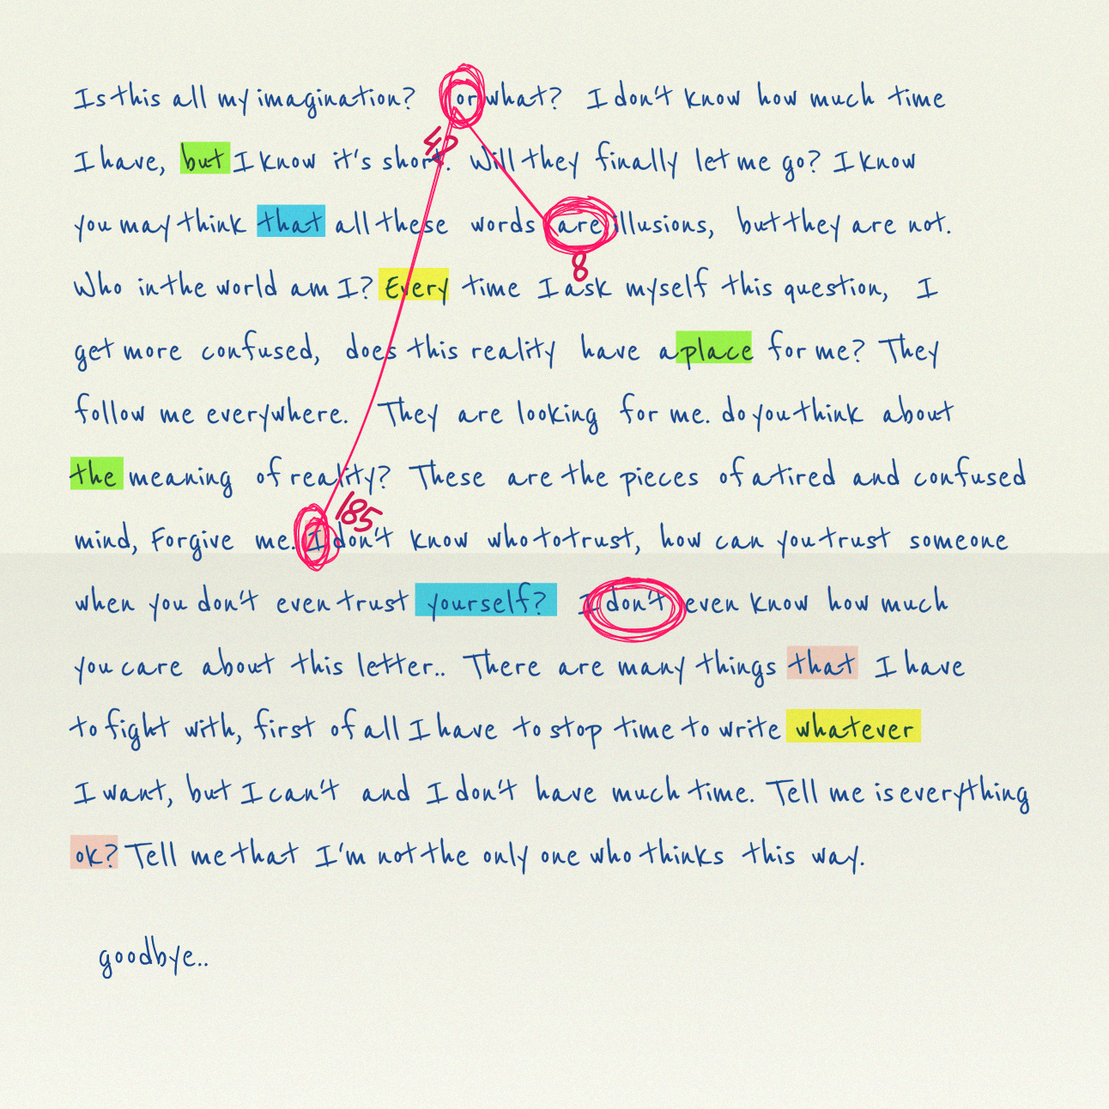 Is this all my imagination? or what? I don't know how much time
42
I have, but I know it's short. Will they finally let me go? I know
you may think that all these words are illusions, but they are not.
8
Who in the world am I? Every time I ask myself this question, I
get more confused, does this reality have a place for me? They
follow me everywhere. They are looking for me. do you think about
the meaning of reality? These are the pieces of a tired and confused
185
mind, Forgive me. I don't know who to trust, how can you trust someone
when you don't even trust yourself? I don't even know how much
you care about this letter.. There are many things that I have
to fight with, first of all I have to stop time to write whatever
I want, but I can't and I don't have much time. Tell me is everything
ok? Tell me that I'm not the only one who thinks this way.
goodbye..